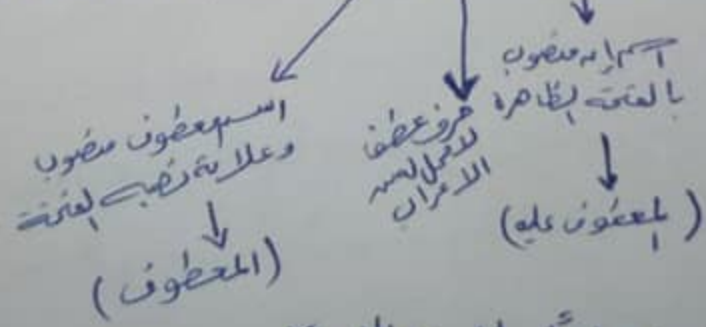 اسم إن منصوب
بالفتحة الظاهرة
(المعطوف عليه)
حرف عطف
لا محل له من
الاعراب
اسم معطوف منصوب
وعلامة نصبه الفتحة
(المعطوف)